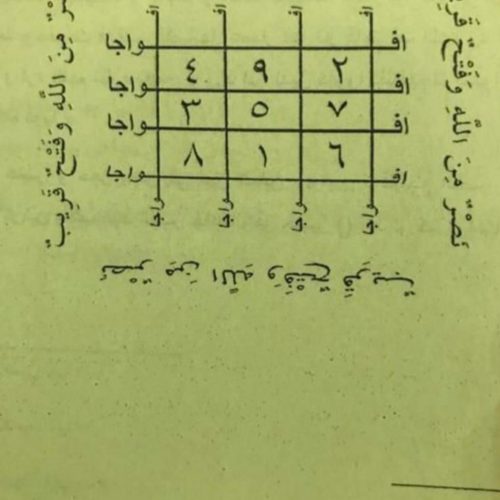 اف اف اف اف
اف واجا
٤ ٩ ٢
اف واجا
٣ ٥ ٧
اف واجا
٨ ١ ٦
اف واجا
واجا واجا واجا واجا
نَصْرٌ مِنَ اللَّهِ وَفَتْحٌ قَرِ
مِنَ اللَّهِ وَفَتْحٌ قَرِيبٌ
نَصْرٌ مِنَ اللَّهِ وَفَتْحٌ قَرِيبٌ